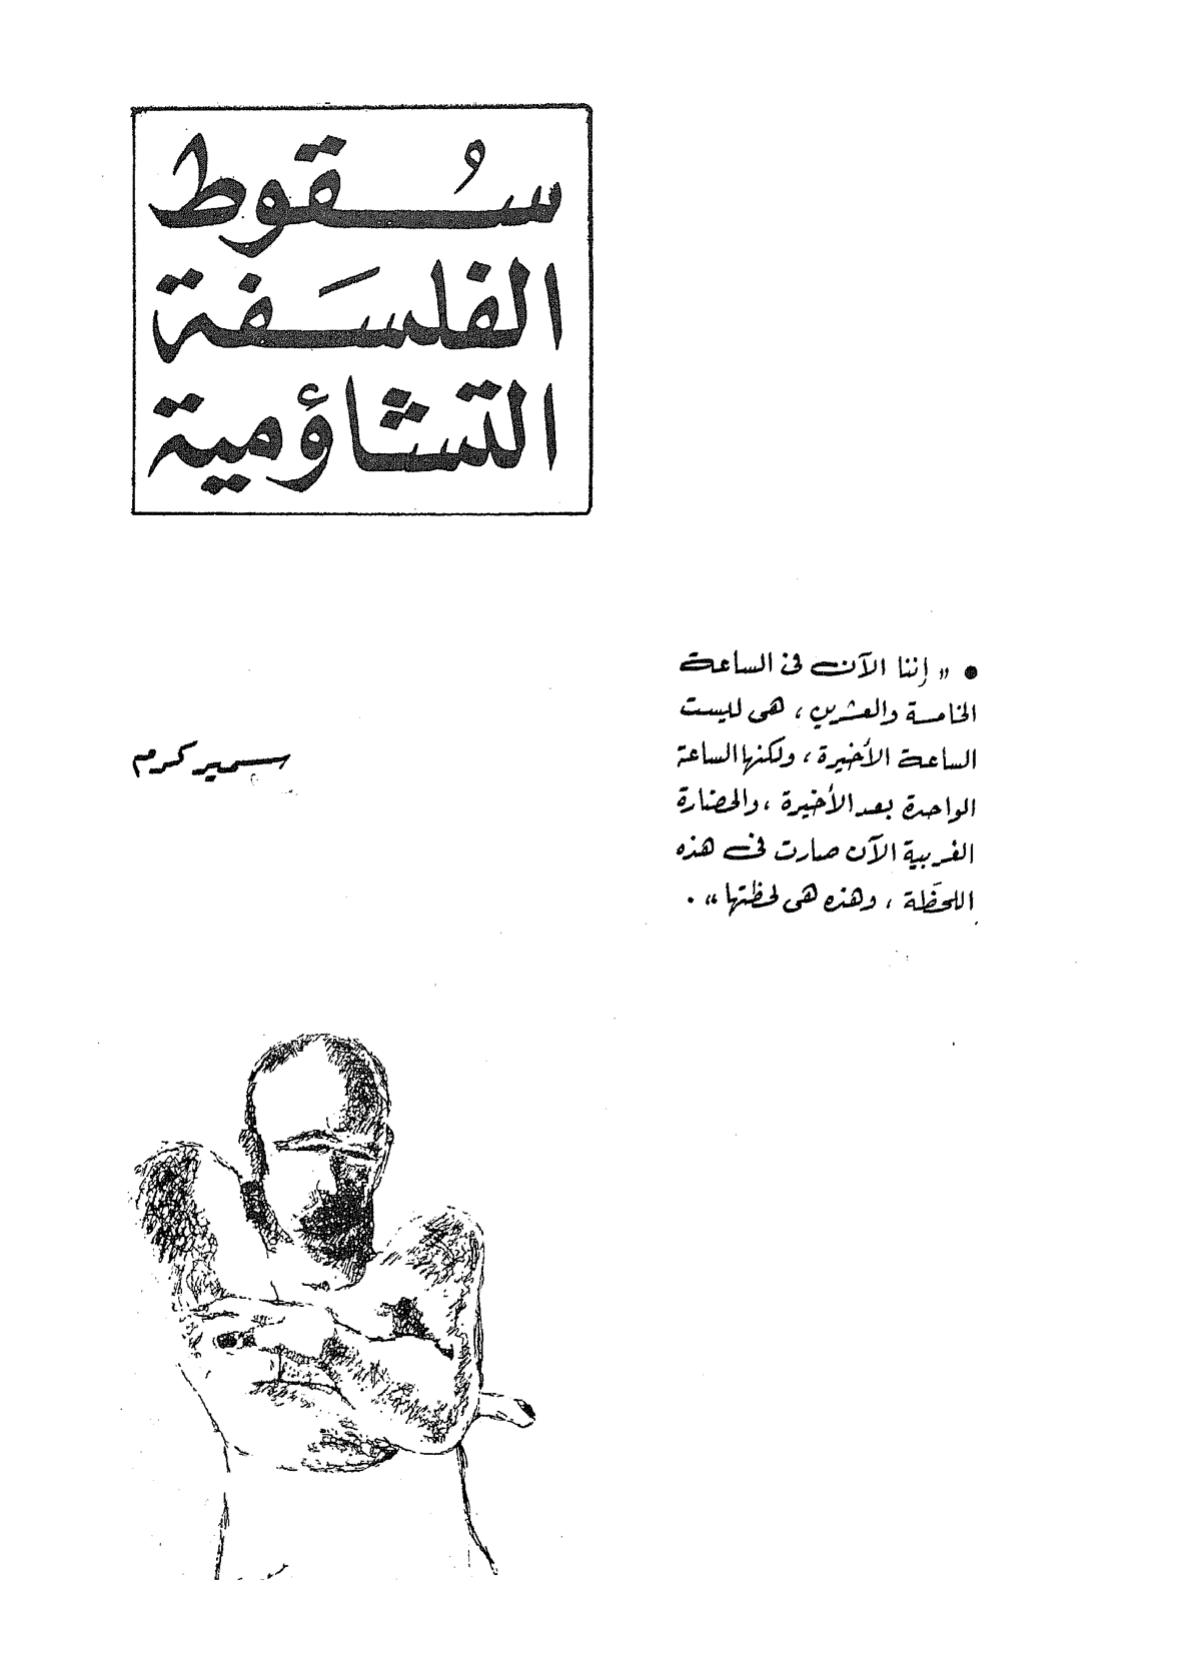 سُقوط
الفلسَفة
التشاؤمية
● « إننا الآن فى الساعة
الخامسة والعشرين ، هى ليست
الساعة الأخيرة ، ولكنها الساعة
الواحدة بعد الأخيرة ، والحضارة
الغربية الآن صارت فى هذه
اللحَظة ، وهذه هى لحظتها » .
سمير كرم